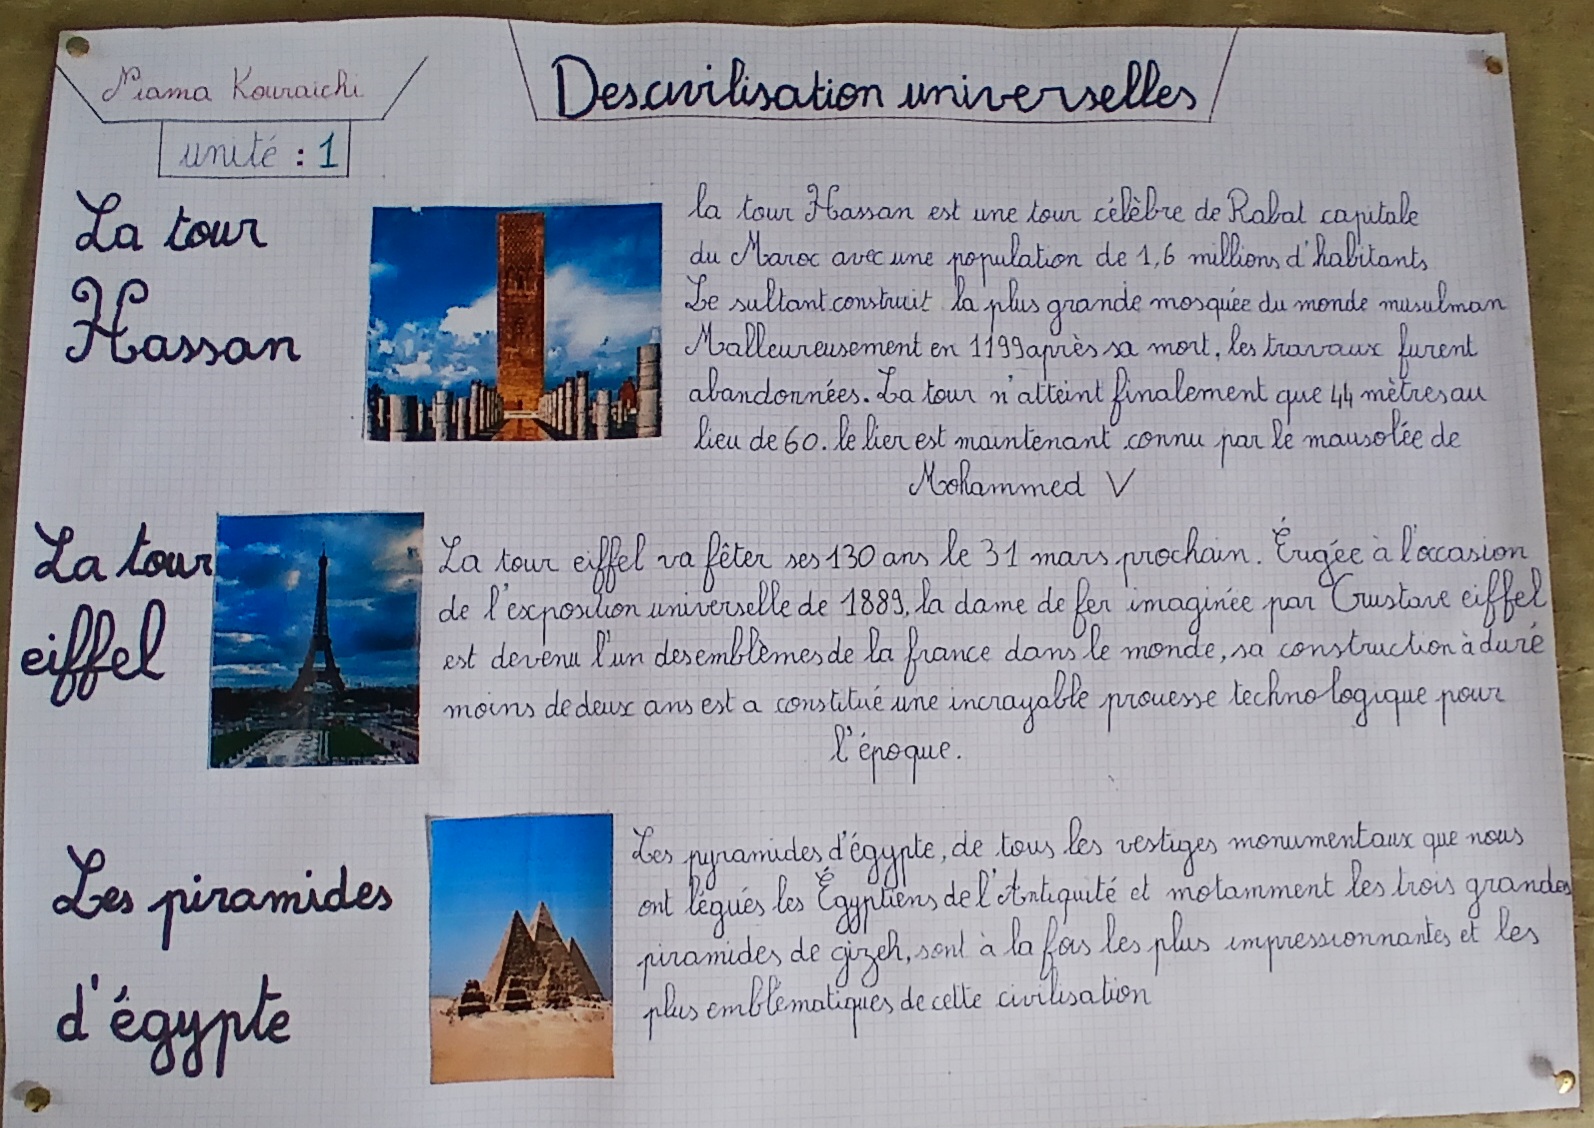 Niama Kouraichi
Des civilisation universelles
unité : 1
La tour
Hassan
la tour Hassan est une tour célèbre de Rabat capitale
du Maroc avec une population de 1,6 millions d'habitants
Le sultant construit la plus grande mosquée du monde musulman
Malleureusement en 1199 après sa mort, les travaux furent
abandonnées. La tour n'atteint finalement que 44 mètres au
lieu de 60. le lier est maintenant connu par le mausolée de
Mohammed V
La tour
eiffel
La tour eiffel va fêter ses 130 ans le 31 mars prochain. Érigée à l'occasion
de l'exposition universelle de 1889, la dame de fer imaginée par Gustave eiffel
est devenu l'un des emblèmes de la france dans le monde, sa construction à duré
moins de deux ans est a constitué une incrayable prouesse technologique pour
l'époque.
Les piramides
d'égypte
Les pyramides d'égypte, de tous les vestiges monumentaux que nous
ont légués les Égyptiens de l'Antiquité et motamment les trois grandes
piramides de gizeh, sont à la fois les plus impressionnantes et les
plus emblématiques de cette civilisation